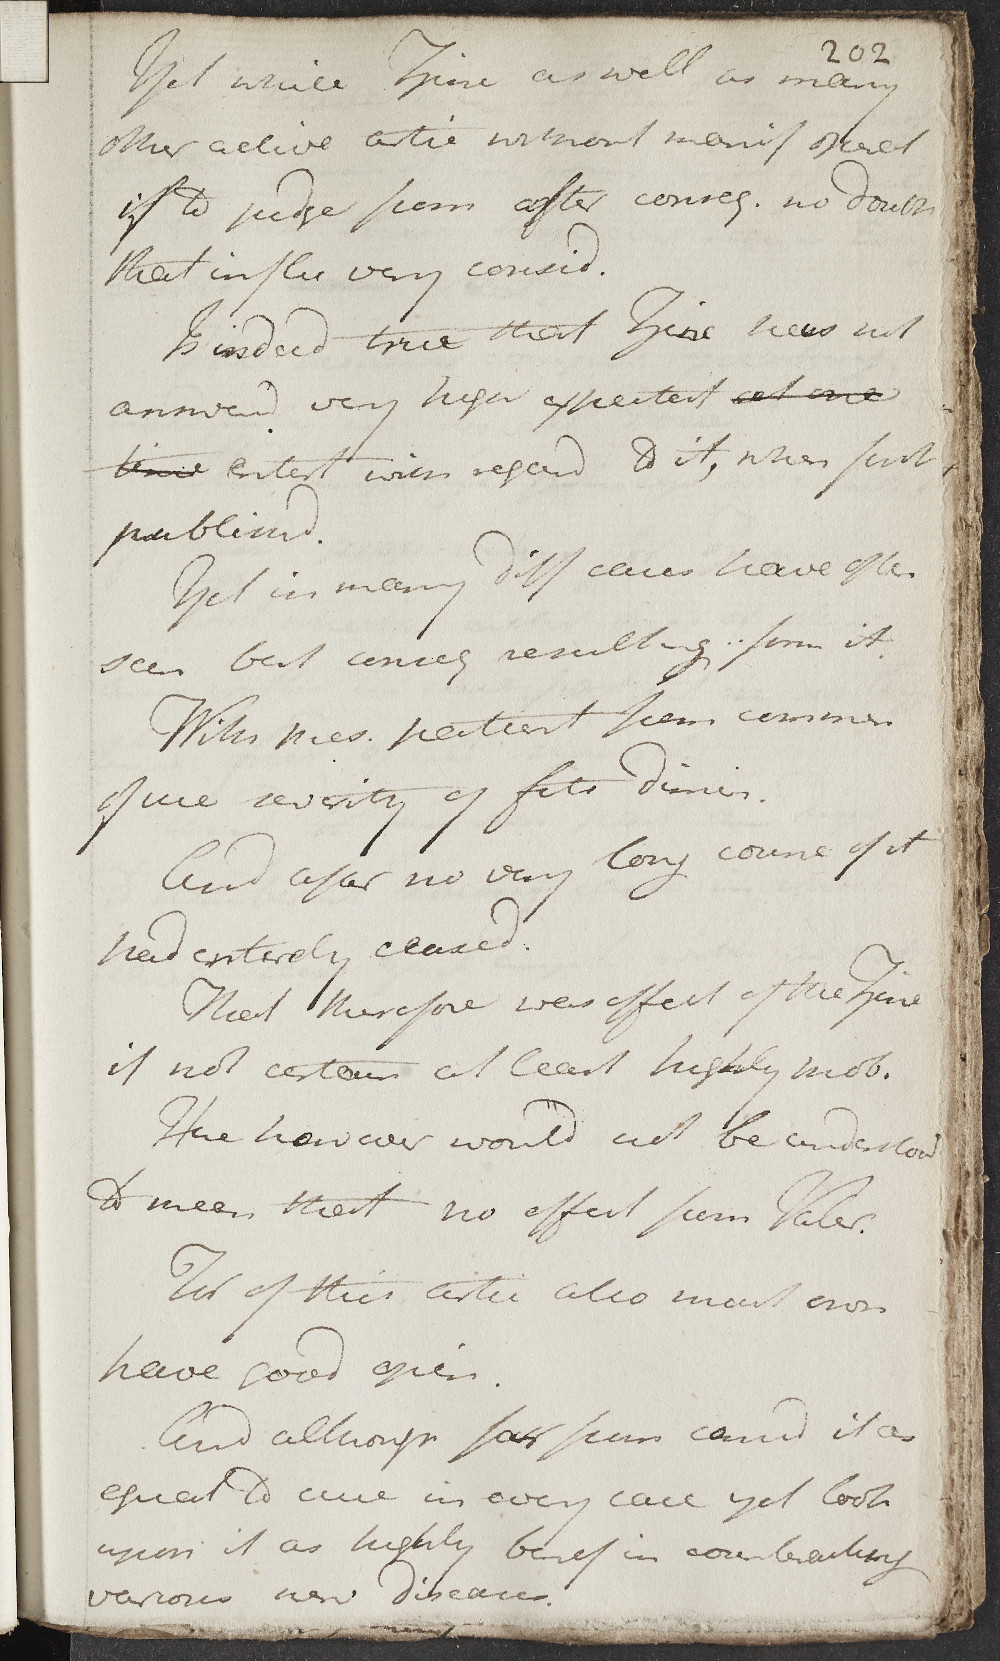 202
Yet while Zinc as well as many
other active artic without manif operat
if to judge from after conseq. no doubt
that influ very consid.
Is indeed true that Zinc has not
answerd very high expectat at one
time entert with regard to it, when first
publishd.
Yet in many diff cases have often
seen best conseq resulting from it.
With pres. patient from commen
of use severity of fits dimin.
And after no very long course of it
had enterely ceased.
That therefore was effect of the Zinc
if not certain at least highly prob.
I here however would not be understood
to mean that no effect from Valer.
For of this artic also must own
have good opin.
And although far from consid it as
equal to cure in every case yet look
upon it as highly benef in counteracting
various nerv diseases.